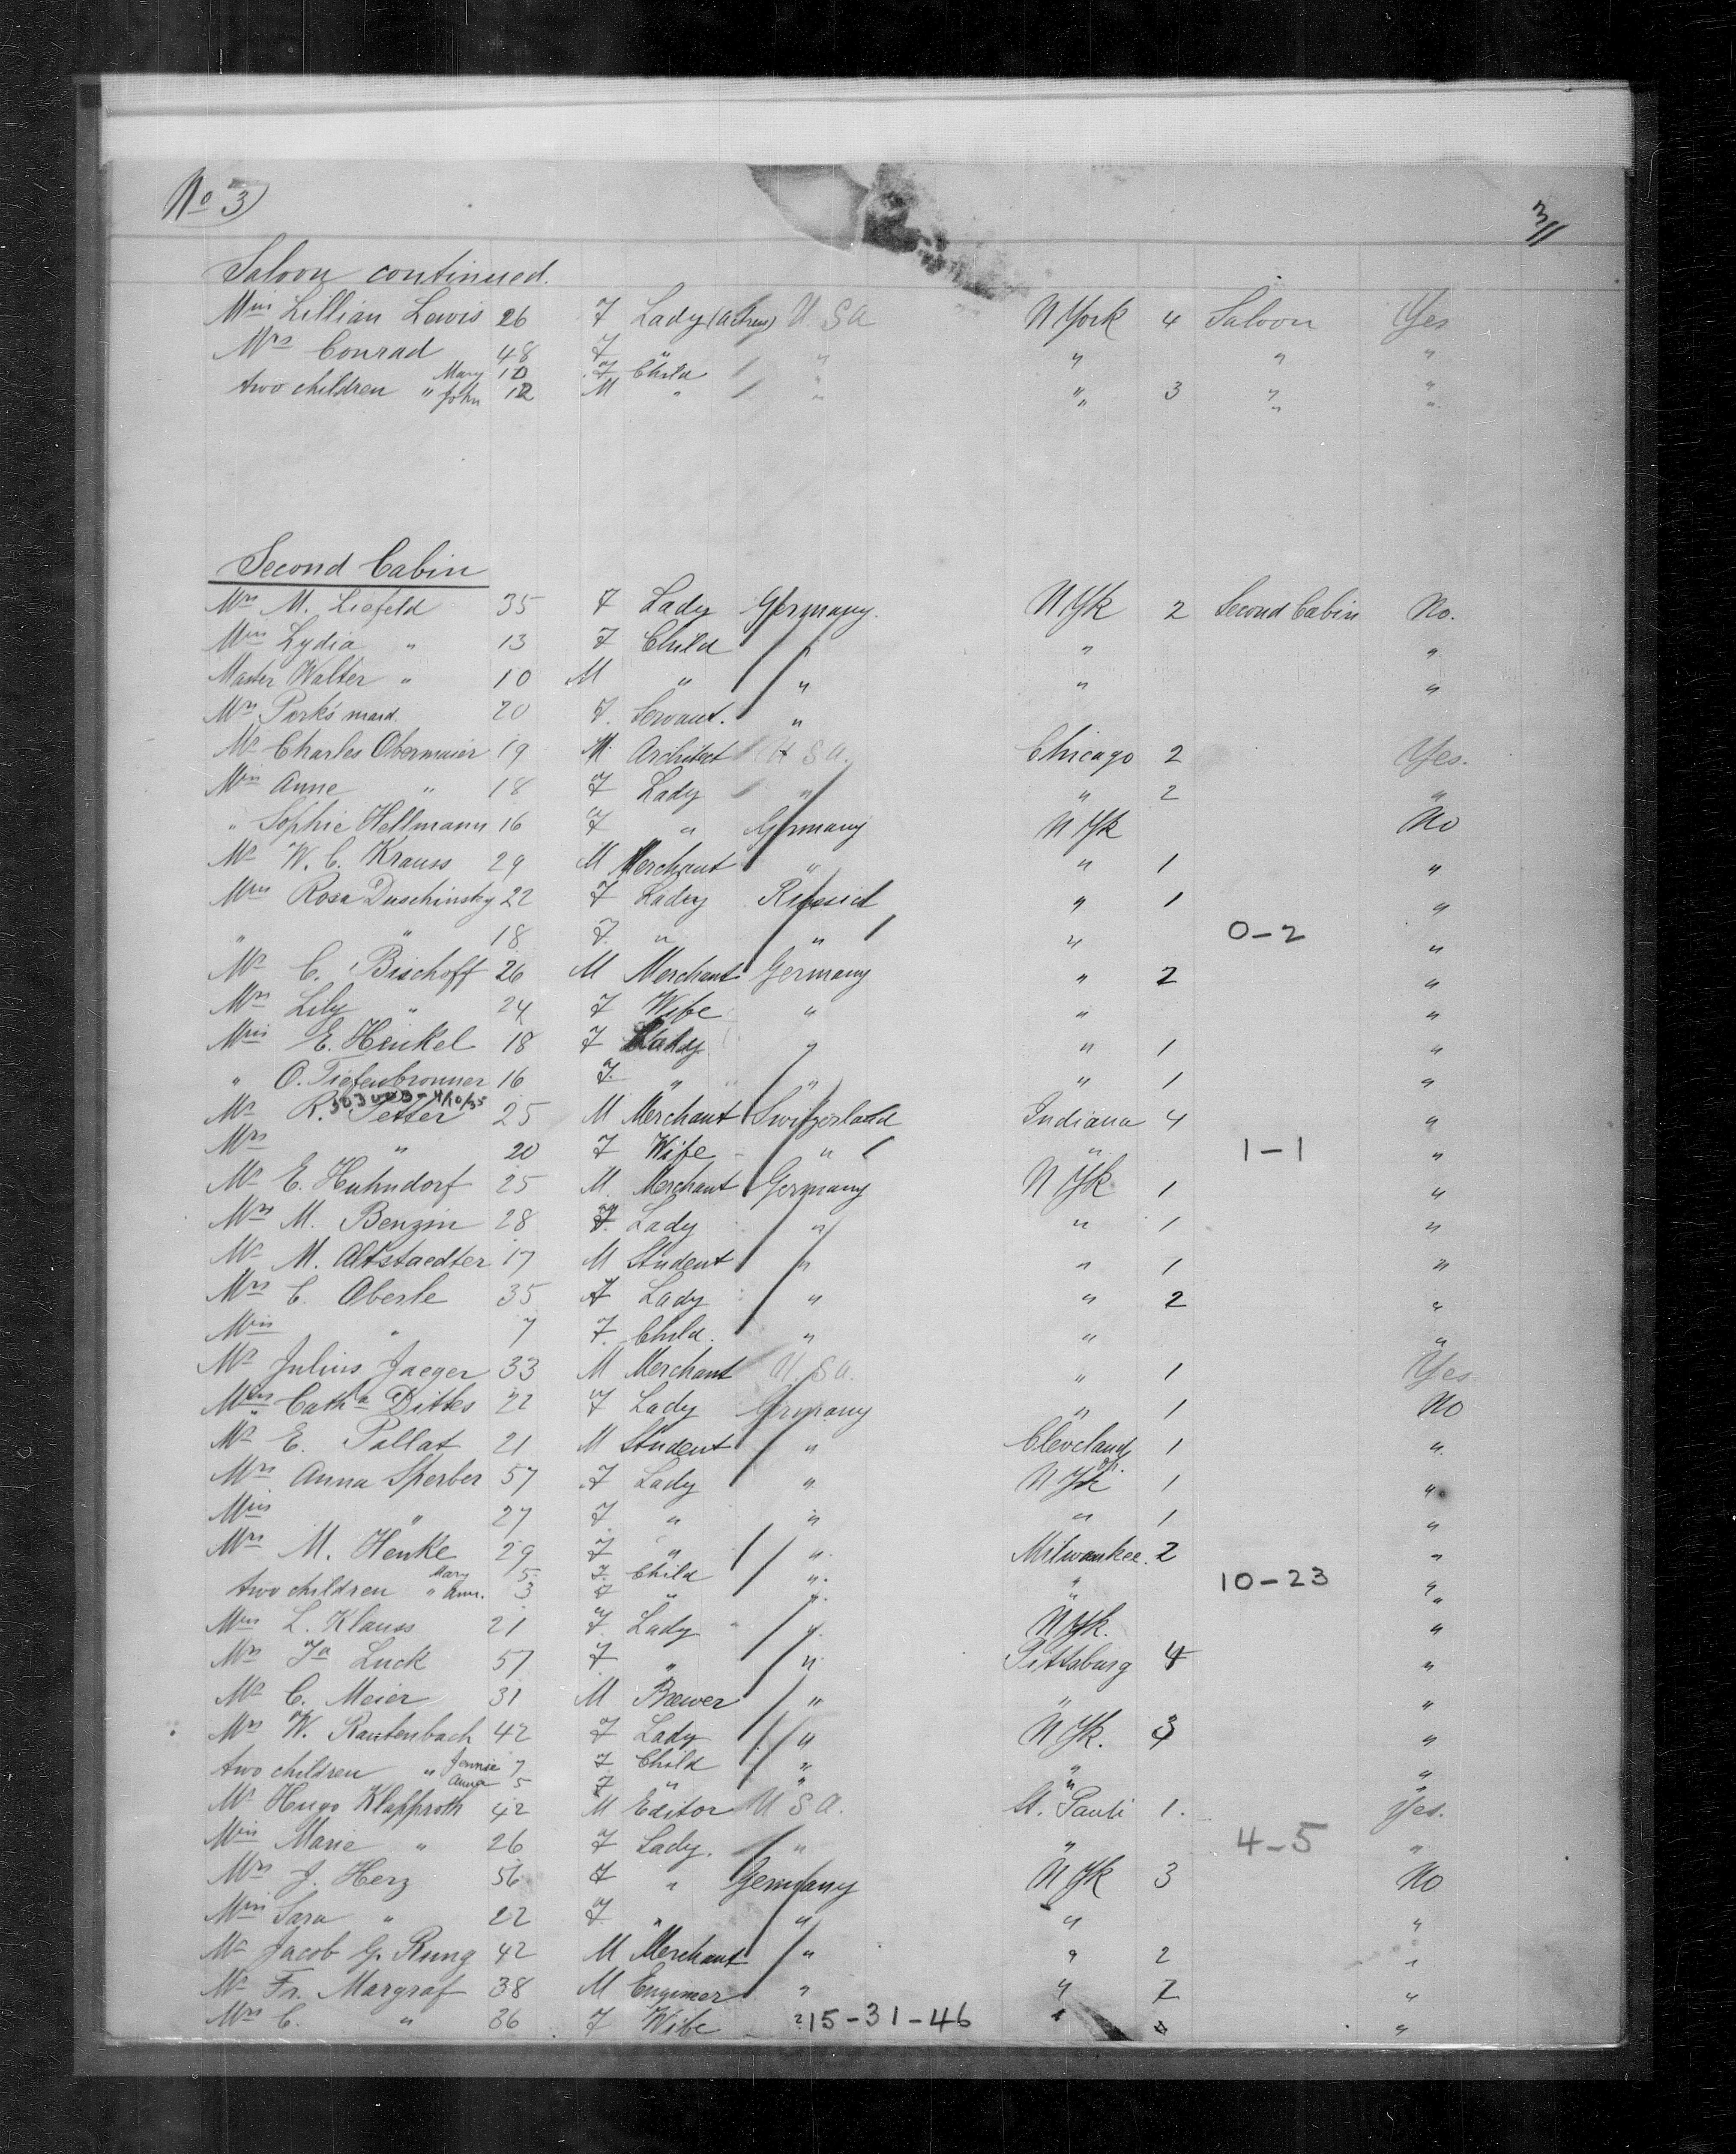 No 3)
3/11
Saloon continued.
Miss Lillian Lewis 26 F Lady (Actress) U S A N York 4 Saloon Yes
Mrs Conrad 48 F " " " " "
two children " Mary 10 F Child " " " "
" John 12 M " " " 3 " "
Second Cabin
Mrs M. Liefeld 35 F Lady Germany. N Yk 2 Second Cabin No.
Miss Lydia " 13 F Child " " "
Master Walter " 10 M " " " "
Mrs Perk's maid. 20 F. Servant. "
Mr Charles Obermaier 19 M. Architect U S A. Chicago 2 Yes.
Miss Anne " 18 F Lady " " 2 "
" Sophie Hellmann 16 F " Germany N Yk No
Mr W. C. Krauss 29 M Merchant " " 1 "
Miss Rosa Duschinsky 22 F Lady " 1 "
" " 18 F. " " " 0-2 "
Mr C. Bischoff 26 M Merchant Germany " 2 "
Mrs Lily " 24 F Wife " " "
Miss E. Henkel 18 F Lady " " 1 "
" O. Tiefenbronner 16 F. " " " 1 "
Mr R. Petter 25 M Merchant Switzerland Indiana 4 "
Mrs " 20 F Wife " " 1-1 "
Mr E. Huhndorf 25 M. Merchant Germany N Yk 1 "
Mrs M. Benzin 28 F. Lady " " 1 "
Mr M. Altstaedter 17 M Student " " 1 "
Mrs C. Oberle 35 F Lady " " 2 "
Miss " 7 F. Child. " " "
Mr Julius Jaeger 33 M Merchant U. S A. " 1 Yes.
Miss Catha Dittes 22 F Lady Germany " 1 No
Mr E. Pallat 21 M Student " Cleveland 1 "
Mrs Anna Sperber 57 F Lady " N Yk 1 "
Miss " 27 F. " " " 1 "
Mrs M. Henke 29 F " " Milwaukee. 2 "
two children " Mary 5 F. Child " " 10-23 "
" Ann. 3 F " " " "
Miss L. Klauss 21 F. Lady " N Yk. "
Mrs Luck 57 F " " Pittsburg 4 "
Mr C. Meier 31 M Brewer " " "
Mrs W. Rautenbach 42 F Lady " N Yk. 3 "
two children " Jennie 7 F. Child " " "
Anna 5 F " " " "
Mr Hugo Klapproth 42 M Editor U S A. St. Paul 1. Yes.
Miss Marie " 26 F Lady. " " 4-5 "
Mrs J. Herz 56 F " Germany N Yk 3 No
Miss Sara " 22 F. " " " "
Mr Jacob G. Rung 42 M Merchant " " 2 "
Mr Fr. Margraf 38 M Engineer " " 2 "
Mrs C. " 36 F Wife " 15-31-46 " "